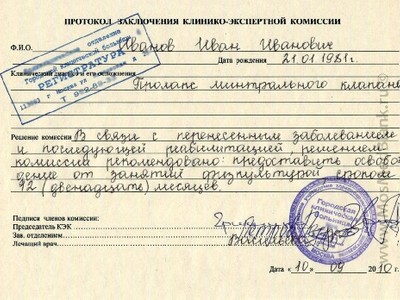 ПРОТОКОЛ ЗАКЛЮЧЕНИЯ КЛИНИКО-ЭКСПЕРТНОЙ КОМИССИИ
Ф.И.О. Иванов Иван Иванович
Дата рождения 21.01.1981г.
отделение
РЕГИСТРАТУРА
Клинический диагноз и его осложнения Пролапс митрального клапана
Решение комиссии В связи с перенесенным заболеванием
и последующей реабилитацией, решением
комиссии рекомендовано: предоставить освобож
дение от занятий физкультурой сроком
92 (двенадцать) месяцев.
Подписи членов комиссии:
Председатель КЭК
Зав. отделением
Лечащий врач
Городская
клиническая
больница
Дата «10» 09 2010 г.